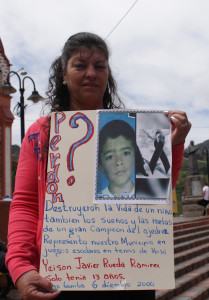 Perdón?
Destruyeron la Vida de un niño
tambien los sueños y las metas
de un gran Campeon del ajedrez
Represento nuestro Municipio en
juegos escolares en tennis de
Yeison Javier Rueda Ramirez
Solo tenia 13 años.
6 diciembre 2000